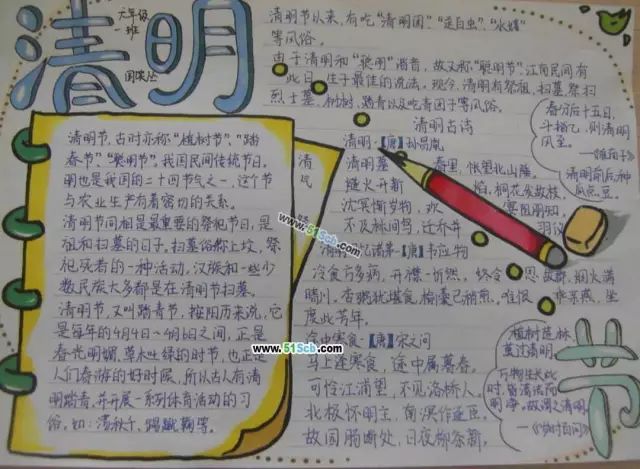 清明
六年级
一班
清明节以来,有吃“清明团”、
等风俗。
由于清明和“聪明”谐音,故又称“聪明节”,江南民间有
此日生子最佳的说法。现今,清明有祭祖、扫墓、祭扫
烈士墓、植树、踏青以及吃青团子等风俗。
清明古诗
清明节,古时亦称“植树节”、“踏
春节”、“聪明节”,我国民间传统节日。
明也是我国的二十四节气之一,这个节
与农业生产有着密切的关系。
清明节间祖是最重要的祭祀节日,是
祖和扫墓的日子。扫墓俗称上坟,祭
祀死者的一种活动,汉族和一些少
数民族大多都是在清明节扫墓。
清明节,又叫踏青节,按阳历来说,它
是每年的4月4日~4月6日之间,正是
春光明媚,草木吐绿的时节,也正
人们春游的好时候,所以古人有清
明踏青,并开展一系列体育活动的习
俗。如:荡秋千、蹴鞠等。
清明·【唐】孙昌胤
清明暮春里,怅望北山陲。
燧火开新焰,桐花发故枝。
沈冥惭岁物,欢宴阻朋知。
不及林间鸟,迁乔
【唐】韦应物
冷食方多病,开襟一忻然。终令思故郡,烟火满
晴川。杏粥犹堪食,榆羹已稍煎。唯恨乖亲燕,坐
度此芳年。
途中寒食·【唐】宋之问
马上逢寒食,途中属暮春。
可怜江浦望,不见洛桥人。
北极怀明主,南溟作逐臣。
故园肠断处,日夜柳条新。
春分后十五日,
斗指乙,则清明
风至。
清明前后种
瓜点豆。
植树造林,
莫过清明
万物生长此
时,皆清洁而
明净,故谓之清明。
—《岁时百问》
节
www.51Scb.com
www.51Scb.com
www.51Scb.com